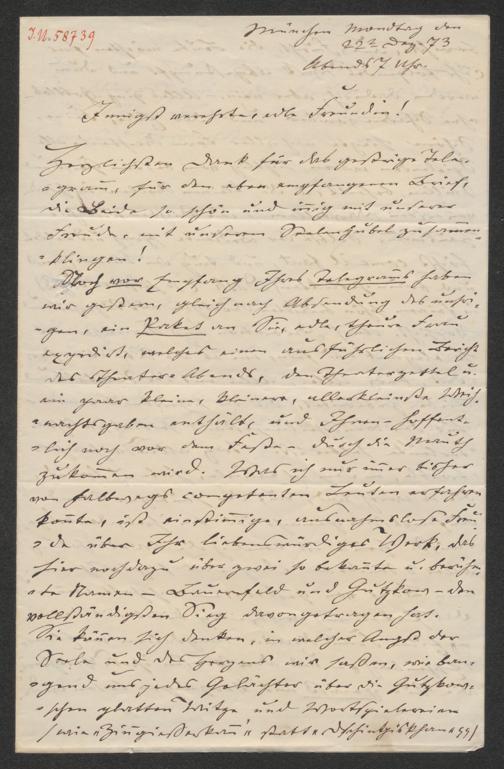 I.N. 58739
München Mondtag den
22t Dez. 73
Abends 7 Uhr.
Innigst verehrte, edle Freundin!
Herzlichsten Dank für das gestrige Tele-
-gramm, für den eben empfangenen Brief,
die Beide so schön und innig mit unserer
Freude, mit unserem Seelenjubel zusammen-
-klingen!
Noch vor Empfang Ihres Telegramms haben
wir gestern, gleich nach Absendung des unsri-
-gen, ein Paket an Sie, edle, theure Frau
expedirt, welches einen ausführlichen Bericht
des Theater-Abends, den Theaterzettel u.
ein paar kleine, kleinere, allerkleinste Weih-
-nachtsgaben enthält, und Ihnen - hoffent-
-lich noch vor dem Feste - durch die Mauth
zukommen wird. Was ich nur immer bisher
von halbwegs competenten Leuten erfahren
konnte, ist einstimmige, ausnahmslose Freu-
-de über Ihr liebenswürdiges Werk, das
hier noch dazu über zwei so bekannte u. berühm-
-te Namen - Bauernfeld und Gutzkow - den
vollständigsten Sieg davongetragen hat.
Sie können sich denken, in welcher Angst der
Seele und des Herzens wir saßen, wie ban-
-gend uns jedes Gelächter über die Gutzkow-
-schen platten Witze und Wortspielereien
(wie "Zinngießerkann" statt "Dschingiskhan"